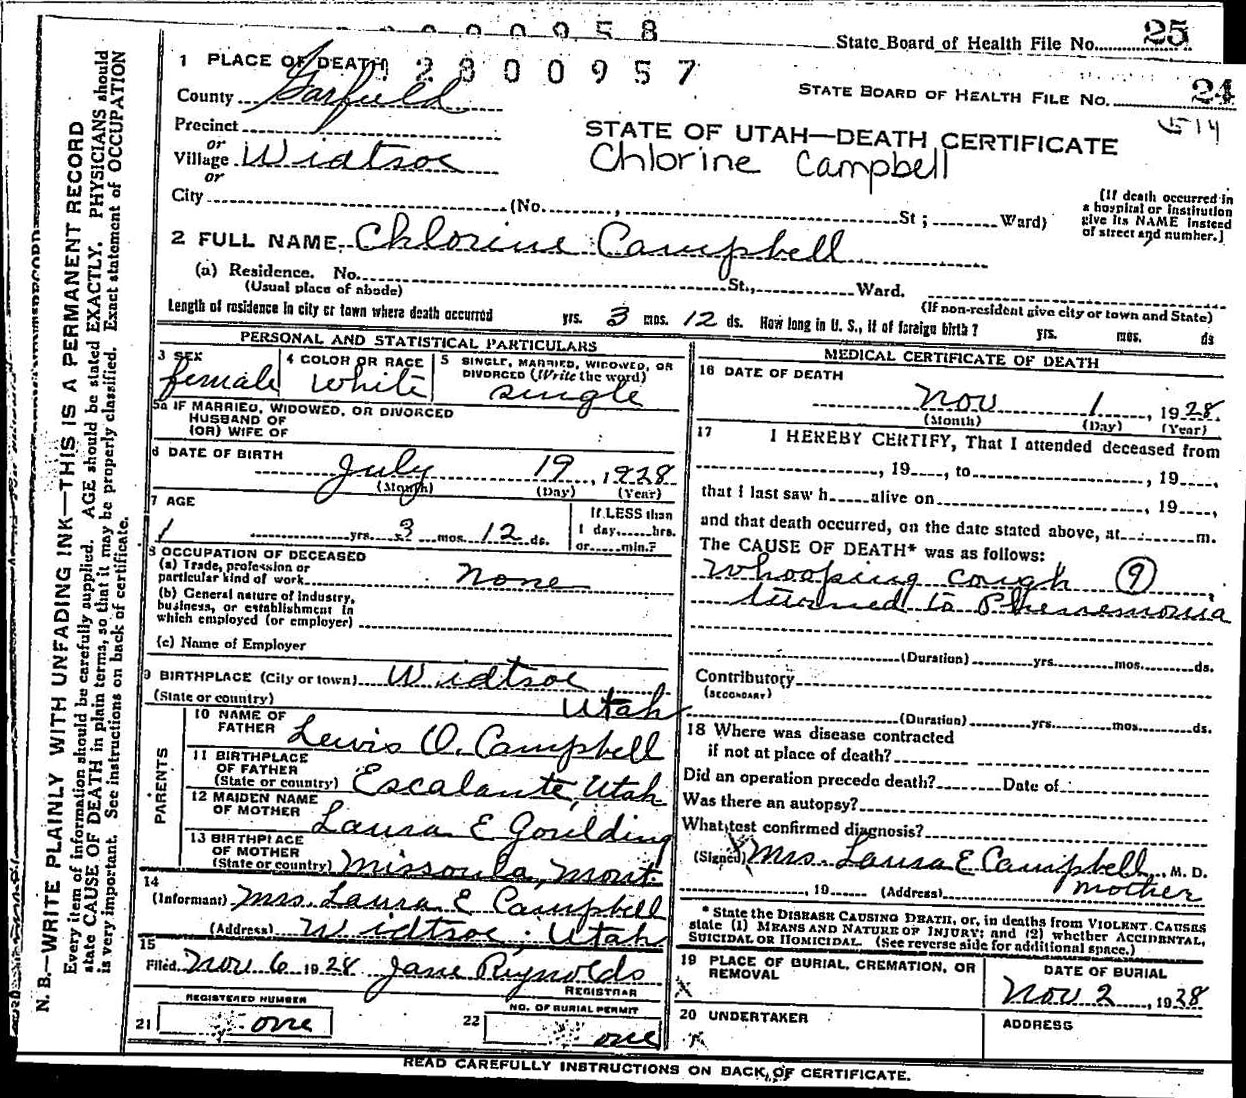 0000958
State Board of Health File No. 25
2800957
STATE BOARD OF HEALTH FILE NO. 24
1 PLACE OF DEATH
County Garfield
Precinct
or
Village Widtsoe
or
City (No. , St ; Ward)
STATE OF UTAH—DEATH CERTIFICATE
Chlorine Campbell
(If death occurred in
a hospital or institution
give its NAME instead
of street and number.)
2 FULL NAME Chlorine Campbell
(a) Residence. No. St., Ward.
(Usual place of abode) (If non-resident give city or town and State)
Length of residence in city or town where death occurred yrs. 3 mos. 12 ds. How long in U. S., if of foreign birth? yrs. mos. ds
PERSONAL AND STATISTICAL PARTICULARS
3 SEX
female
4 COLOR OR RACE
white
5 SINGLE, MARRIED, WIDOWED, OR
DIVORCED (Write the word)
single
5a IF MARRIED, WIDOWED, OR DIVORCED
HUSBAND OF
(OR) WIFE OF
6 DATE OF BIRTH
July 19, 1928
(Month) (Day) (Year)
7 AGE
1 yrs. 3 mos. 12 ds.
If LESS than
1 day, hrs.
or min.?
8 OCCUPATION OF DECEASED
(a) Trade, profession or
particular kind of work none
(b) General nature of industry,
business, or establishment in
which employed (or employer)
(c) Name of Employer
9 BIRTHPLACE (City or town) Widtsoe
(State or country) Utah
PARENTS
10 NAME OF
FATHER Lewis O. Campbell
11 BIRTHPLACE
OF FATHER
(State or country) Escalante, Utah
12 MAIDEN NAME
OF MOTHER Laura E Goulding
13 BIRTHPLACE
OF MOTHER
(State or country) Missoula, Mont.
14
(Informant) Mrs. Laura E Campbell
(Address) Widtsoe, Utah
15
Filed Nov 6 1928 Jane Reynolds
REGISTRAR
REGISTERED NUMBER
21 one
NO. OF BURIAL PERMIT
22 one
MEDICAL CERTIFICATE OF DEATH
16 DATE OF DEATH
Nov 1, 1928
(Month) (Day) (Year)
17 I HEREBY CERTIFY, That I attended deceased from
, 19 , to , 19 ,
that I last saw h alive on , 19 ,
and that death occurred, on the date stated above, at m.
The CAUSE OF DEATH* was as follows:
Whooping cough 9
turned to Phenemonia
(Duration) yrs. mos. ds.
Contributory
(SECONDARY)
(Duration) yrs. mos. ds.
18 Where was disease contracted
if not at place of death?
Did an operation precede death? Date of
Was there an autopsy?
What test confirmed diagnosis?
(Signed) Mrs. Laura E Campbell M. D.
mother
, 19 (Address)
* State the DISEASE CAUSING DEATH, or, in deaths from VIOLENT CAUSES
state (1) MEANS AND NATURE OF INJURY; and (2) whether ACCIDENTAL,
SUICIDAL OR HOMICIDAL. (See reverse side for additional space.)
19 PLACE OF BURIAL, CREMATION, OR
REMOVAL
X
DATE OF BURIAL
Nov 2, 1928
20 UNDERTAKER
ADDRESS
READ CAREFULLY INSTRUCTIONS ON BACK OF CERTIFICATE.
N. B.—WRITE PLAINLY WITH UNFADING INK—THIS IS A PERMANENT RECORD
Every item of information should be carefully supplied. AGE should be stated EXACTLY. PHYSICIANS should
state CAUSE OF DEATH in plain terms, so that it may be properly classified. Exact statement of OCCUPATION
is very important. See instructions on back of certificate.